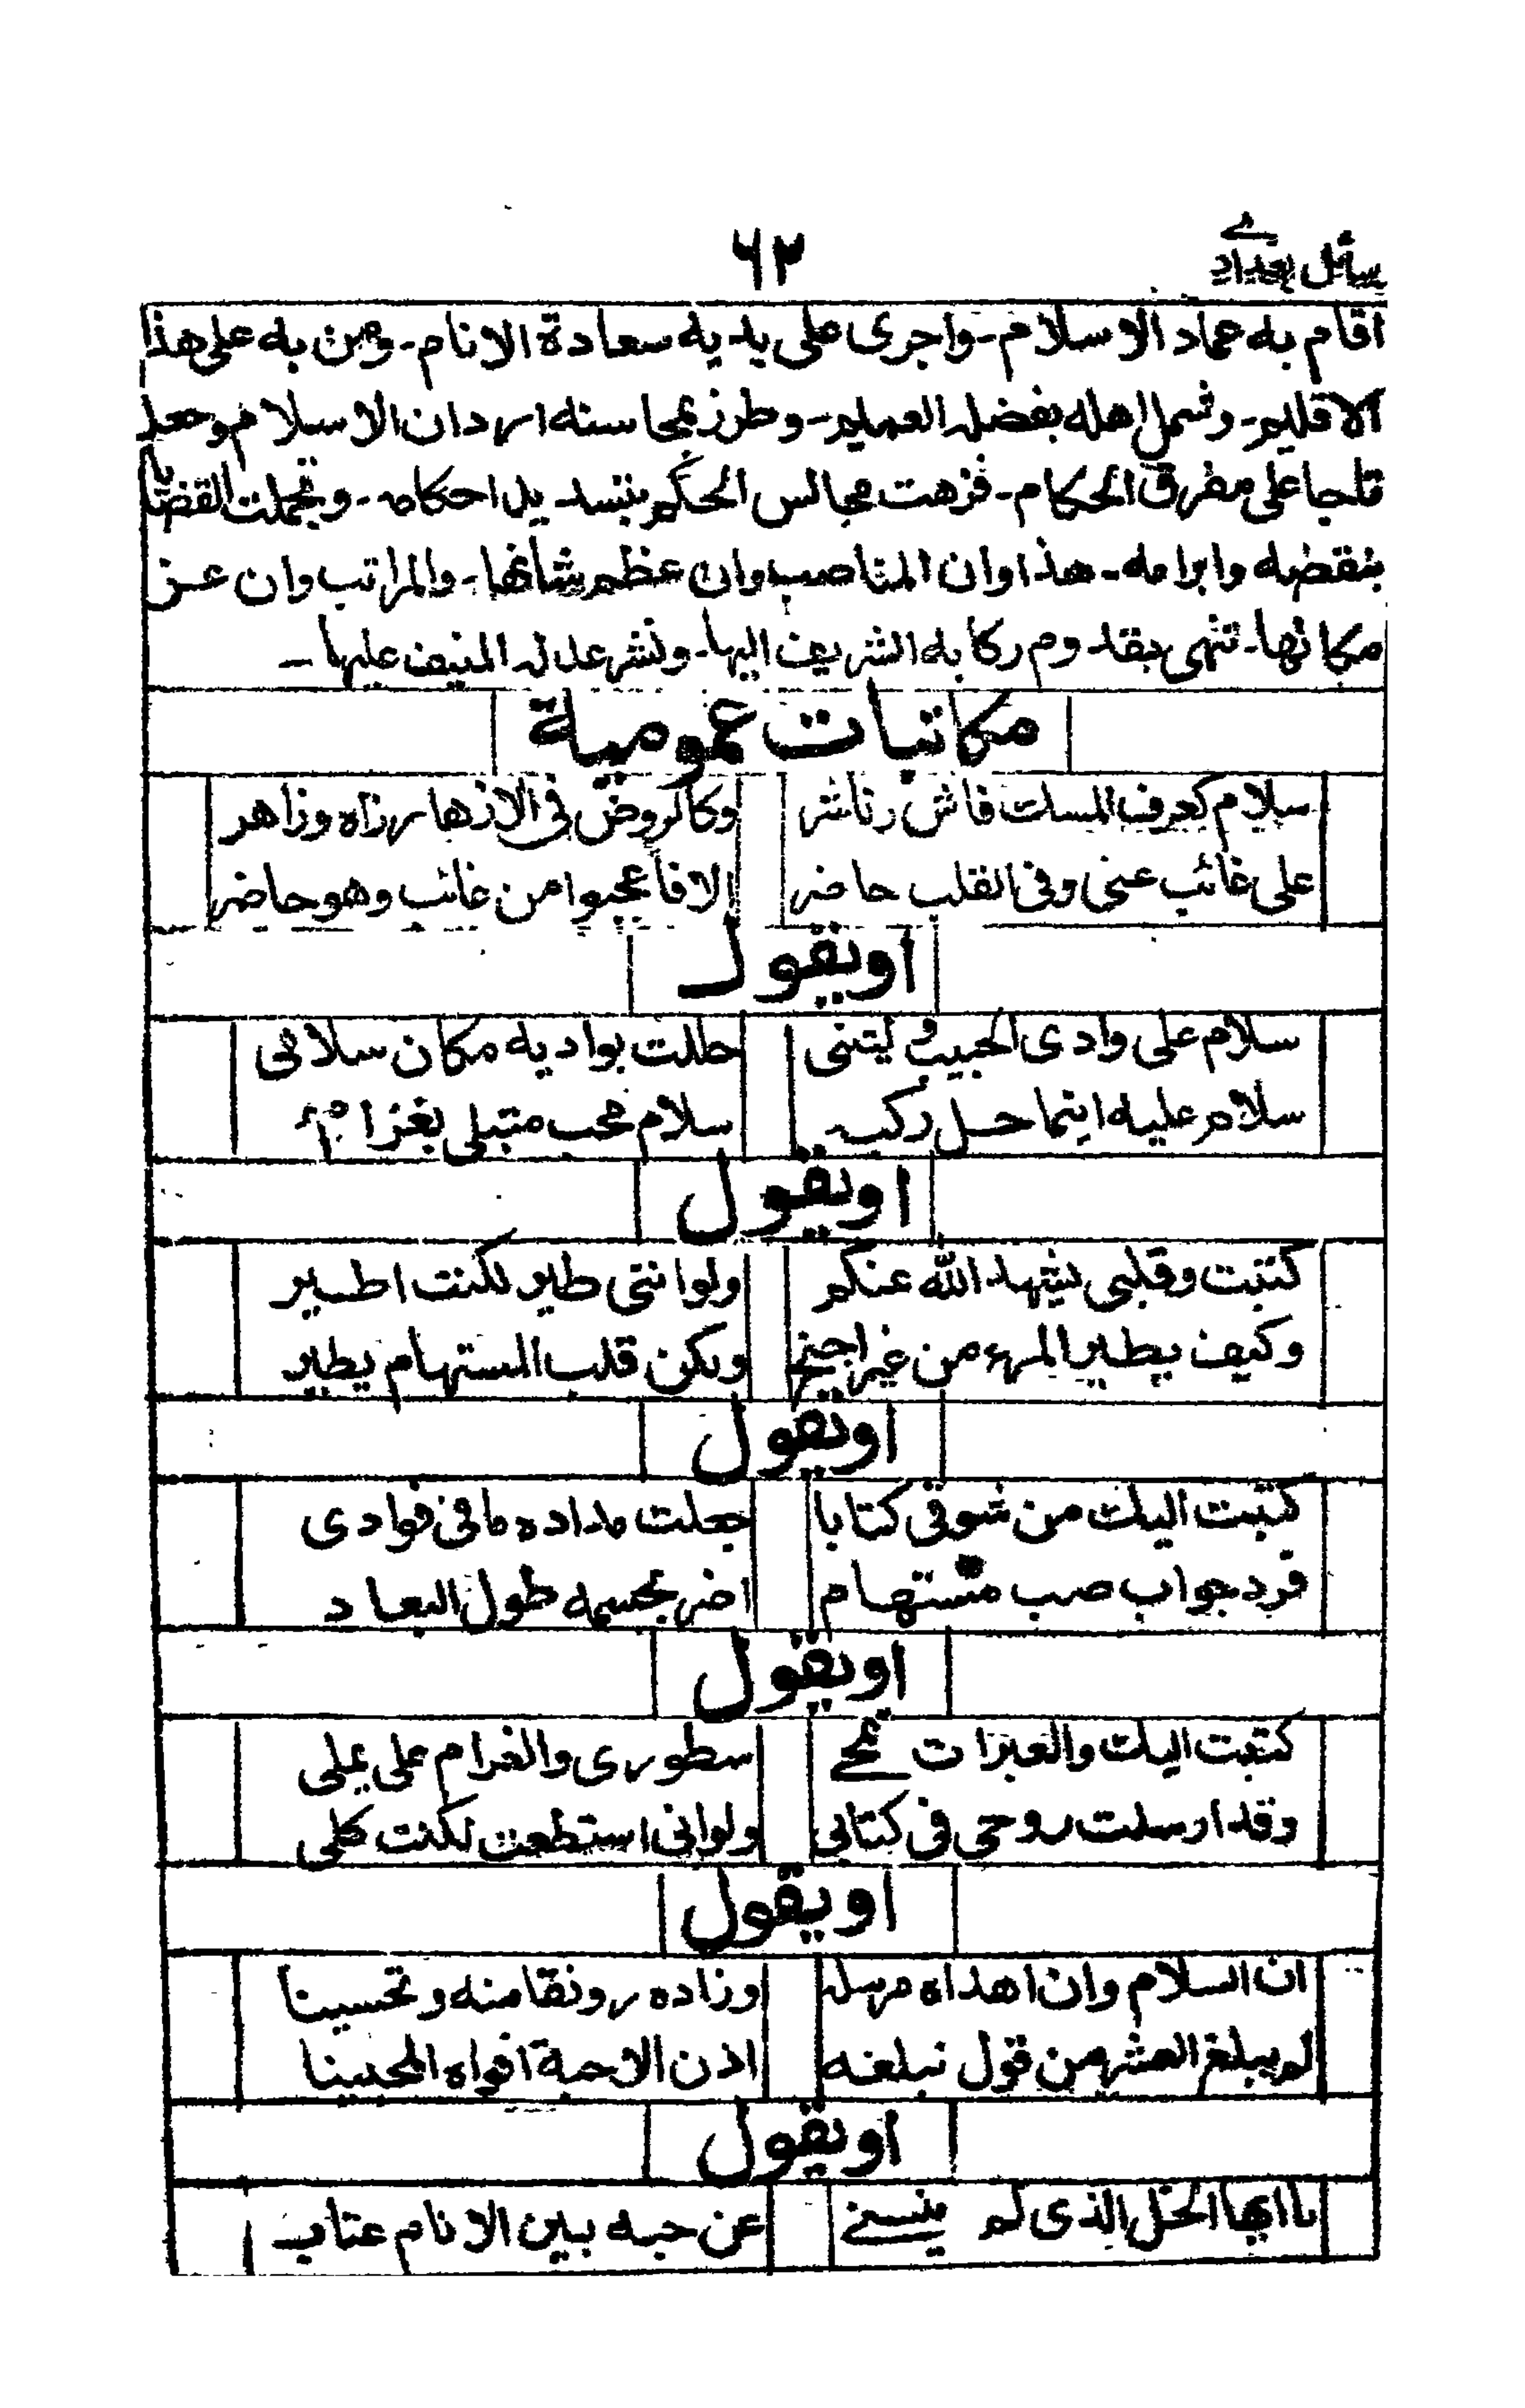 رسائل بغدادے
٦٣
اقام به عماد الاسلام - واجرى على يديه سعادة الانام - ومن به على هذا
الاقليم - وشمل اهله بفضله العميم - وطرز بمحاسنه اردان الاسلام وجعله
تاجا على مفرق الحكام - فزهت مجالس الحكم بتسديد احكامه - وتجملت القضايا
بنقضه وابرامه - هذا وان المناصب وان عظم شانها - والمراتب وان عز
مكانها - تنهى بقدوم ركابه الشريف اليها - ونشر عدله المنيف عليها -
مكاتبات عمومية
سلام كعرف المسك فاش وناشر وكالروض فى الازهار زاه وزاهر
على غائب عنى وفى القلب حاضر الا فاعجبوا من غائب وهو حاضر
او يقول
سلام على وادى الحبيب وليتنى حللت بواديه مكان سلامى
سلام عليه اينما حل ركبه سلام محب مبتلى بغرام
او يقول
كتبت وقلبى يشهد الله عنكم ولو اننى طير لكنت اطير
وكيف يطير المرء من غير اجنح ولكن قلب المستهام يطير
او يقول
كتبت اليك من شوقى كتابا جعلت مداده ما فى فوادى
فرد جواب صب مستهام اضر بجسمه طول البعاد
او يقول
كتبت اليك والعبرات تمحے سطورى والغرام على يملى
وقد ارسلت روحى فى كتابى ولو انى استطعت لكنت كلى
او يقول
ان السلام وان اهداه مرسله وزاده رونقا منه وتحسينا
لم يبلغ العشر من قول تبلغه اذن الاحبة افواه المحبينا
او يقول
يا ايها الخل الذى لم ينسنے عن حبه بين الانام عتاب